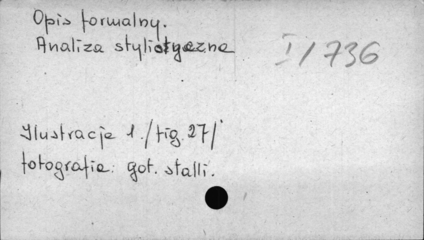 Opis formalny.
Analiza stylistyczna
I/736
Ilustracje 1./fig. 27/
fotografie: got. stalli.